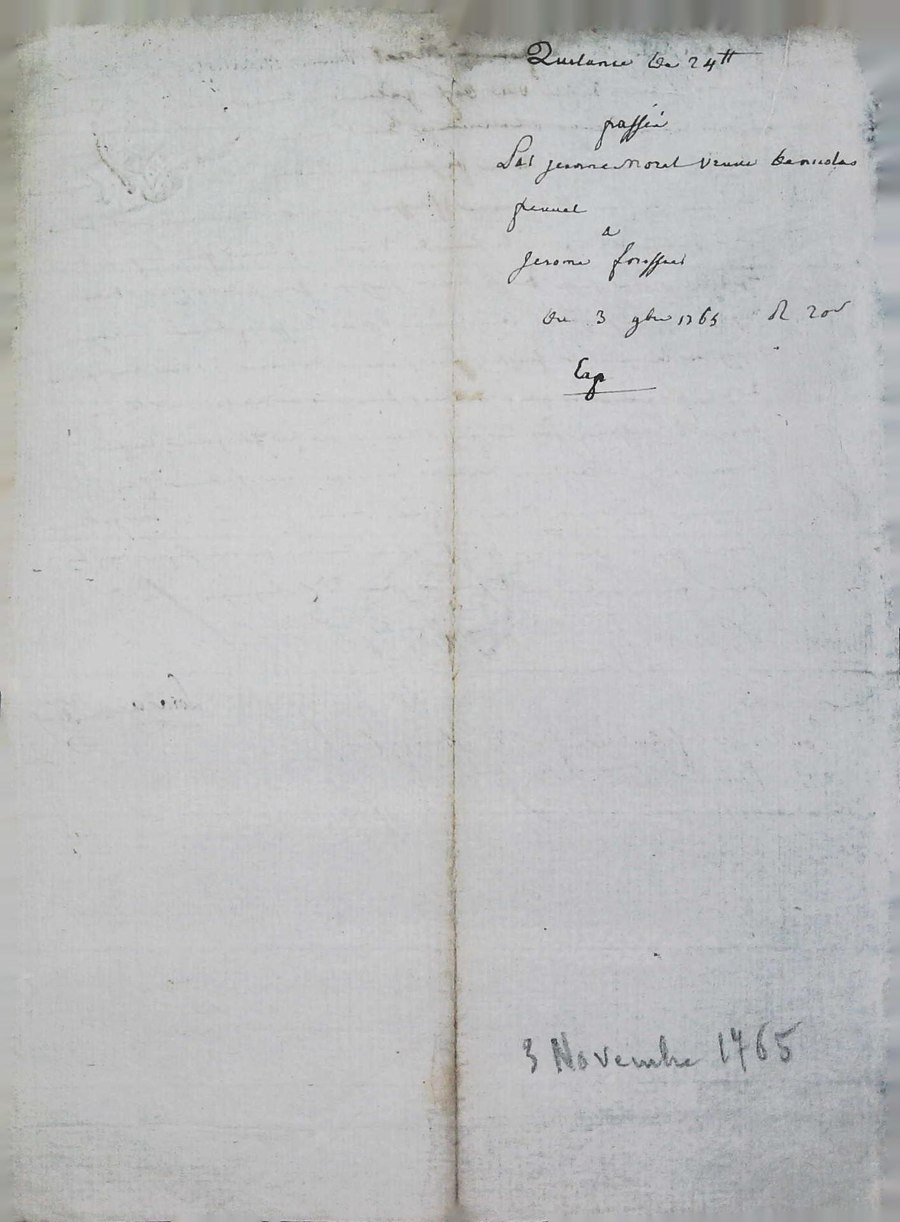 Quitance de 24tt
passée
Par jerome Morel veuve de nicolas
a
jerome
du 3 9bre 1765 R 20s
Exp
3 Novembre 1765